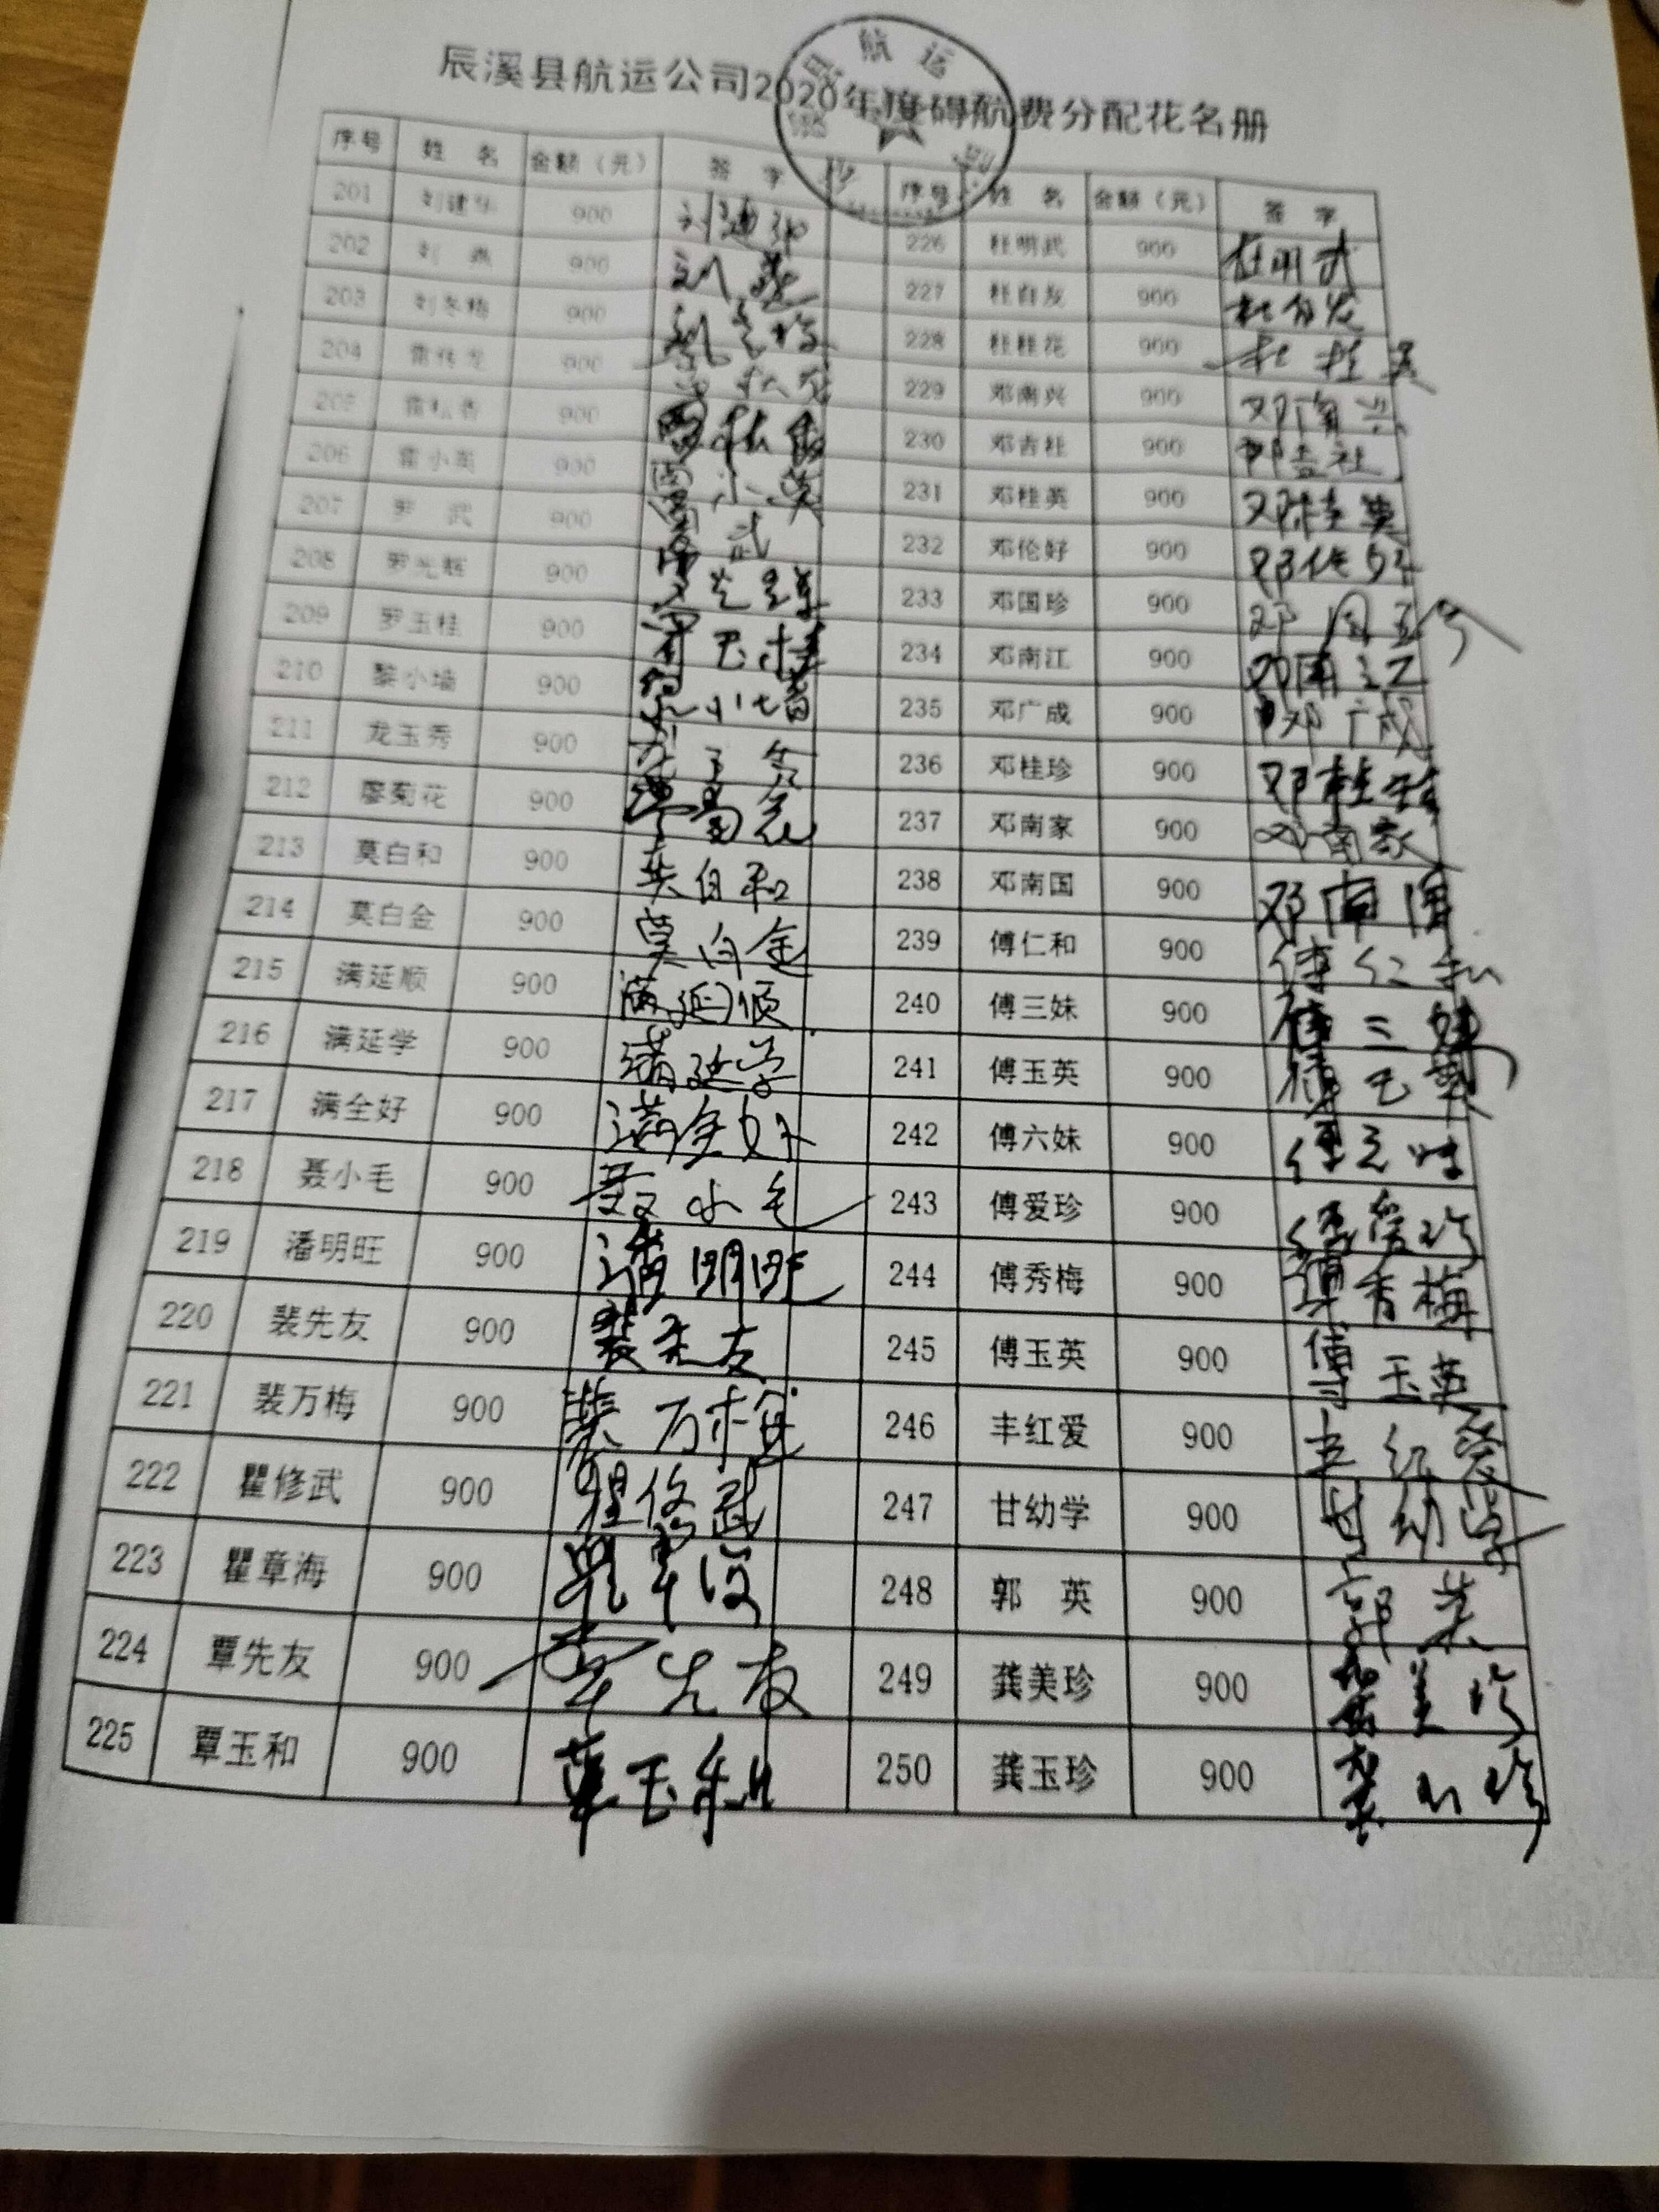 辰溪县航运公司2020年度碍航费分配花名册
航运
序号 姓 名 金额（元） 签 字 序号 姓 名 金额（元） 签 字
201 刘建华 900 刘建华 226 杜明武 900 杜明武
202 刘 燕 900 刘燕 227 杜自友 900
203 刘冬梅 900 刘冬梅 228 杜桂花 900 杜桂
204 雷伟龙 900 229 邓南兴 900 邓南兴
205 雷松香 900 雷松香 230 邓吉社 900 邓吉社
206 雷小英 900 雷小英 231 邓桂英 900 邓桂英
207 罗 武 900 罗武 232 邓伦好 900 邓伦好
208 罗光辉 900 罗光辉 233 邓国珍 900 邓国珍
209 罗玉桂 900 罗玉桂 234 邓南江 900 邓南江
210 黎小墙 900 小墙 235 邓广成 900 邓广成
211 龙玉秀 900 龙玉秀 236 邓桂珍 900 邓桂珍
212 廖菊花 900 237 邓南家 900 邓南家
213 莫白和 900 莫白和 238 邓南国 900 邓南国
214 莫白金 900 莫白金 239 傅仁和 900 傅仁和
215 满延顺 900 满延顺 240 傅三妹 900 傅三妹
216 满延学 900 满延学 241 傅玉英 900 傅玉英
217 满全好 900 满全好 242 傅六妹 900 傅六妹
218 聂小毛 900 聂小毛 243 傅爱珍 900 傅爱珍
219 潘明旺 900 潘明旺 244 傅秀梅 900 秀梅
220 裴先友 900 裴先友 245 傅玉英 900 傅玉英
221 裴万梅 900 裴万梅 246 丰红爱 900 丰红爱
222 瞿修武 900 瞿修武 247 甘幼学 900 甘幼学
223 瞿章海 900 瞿章海 248 郭 英 900 郭英
224 覃先友 900 覃先友 249 龚美珍 900 龚美珍
225 覃玉和 900 覃玉和 250 龚玉珍 900 龚玉珍